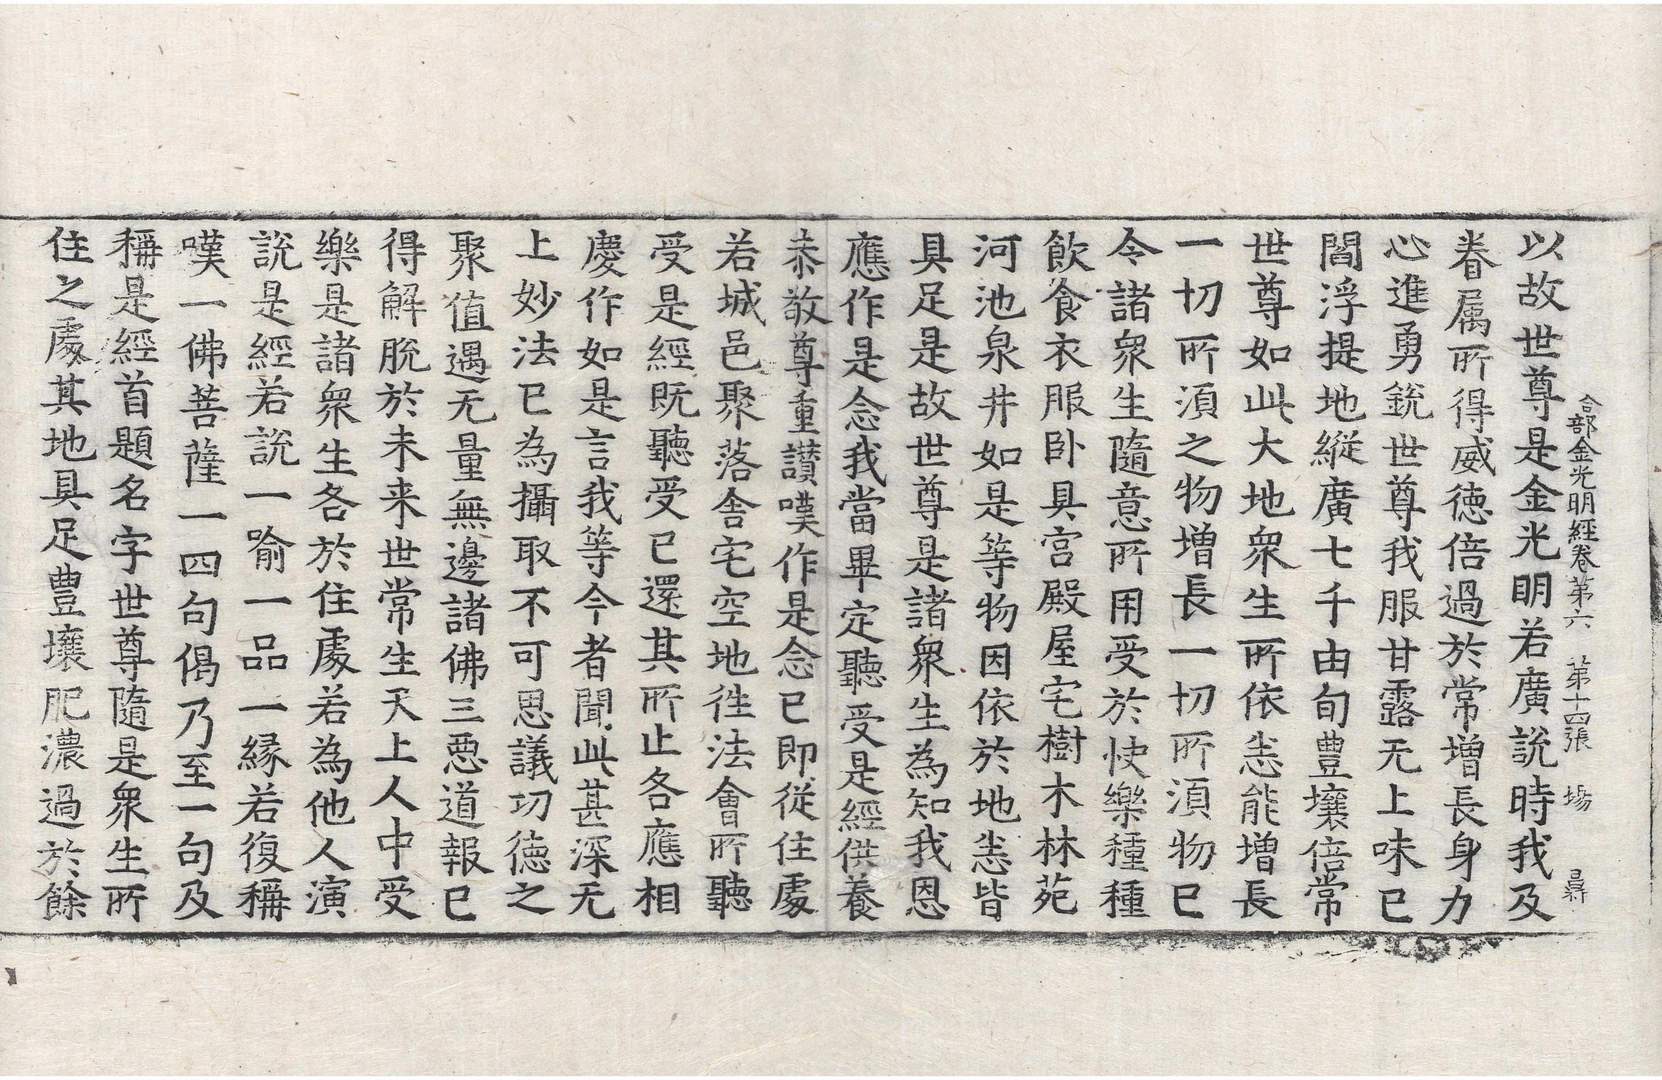 合部金光明経卷第六 第十四張 場
以故世尊是金光明若廣說時我及
眷属所得威德倍過於常增長身力
心進勇銳世尊我服甘露无上味已
閻浮提地縱廣七千由旬豊壤倍常
世尊如此大地衆生所依悉能增長
一切所湏之物增長一切所湏物已
令諸衆生隨意所用受於快樂種種
飲食衣服卧具宮殿屋宅樹木林苑
河池泉井如是等物因依於地悉皆
具足是故世尊是諸衆生為知我恩
應作是念我當畢定聽受是經供養
恭敬尊重讃嘆作是念已即從住處
若城邑聚落舍宅空地徃法會所聽
受是經既聽受已還其所止各應相
慶作如是言我等今者聞此甚深无
上妙法已為攝取不可思議功德之
聚值遇无量無邊諸佛三惡道報已
得解脫於未来世常生天上人中受
樂是諸衆生各於住處若為他人演
說是經若說一喻一品一縁若復稱
嘆一佛菩薩一四句偈乃至一句及
稱是經首題名字世尊隨是衆生所
住之處其地具足豊壤肥濃過於餘